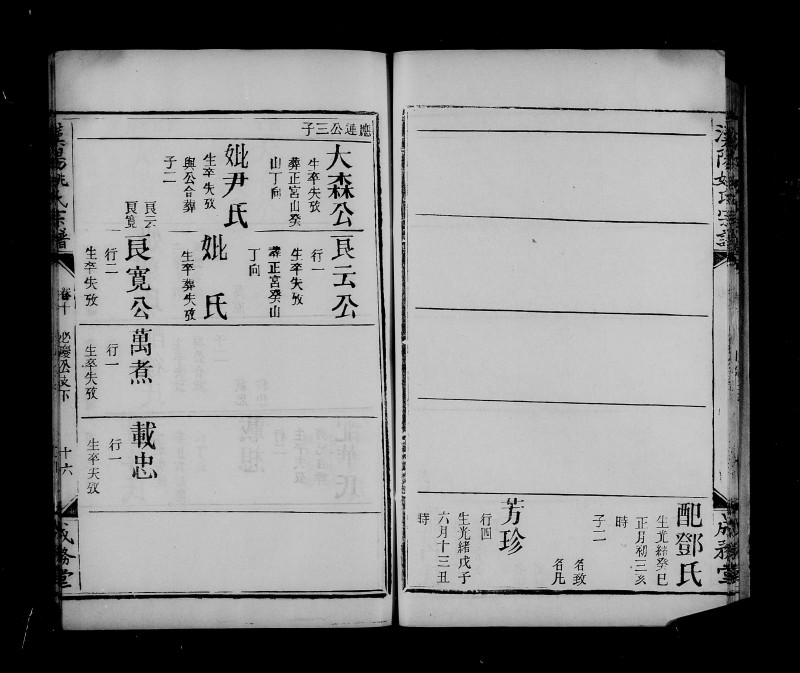 配鄧氏
生光緒癸巳
正月初三亥
時
子二
名致
名凡
芳珍
行四
生光緒戊子
六月十三丑
時
成務堂
應進公三子
大森公
生卒失攷
葬正宮山癸
山丁向
妣尹氏
生卒失攷
與公合葬
子二
良云
良寬
良云公
行一
生卒失攷
葬正宮癸山
丁向
妣 氏
生卒葬失攷
良寬公
行二
生卒失攷
萬煮
行一
生卒失攷
載忠
行一
生卒失攷
漢陽姚氏宗譜
卷十
十六
成務堂